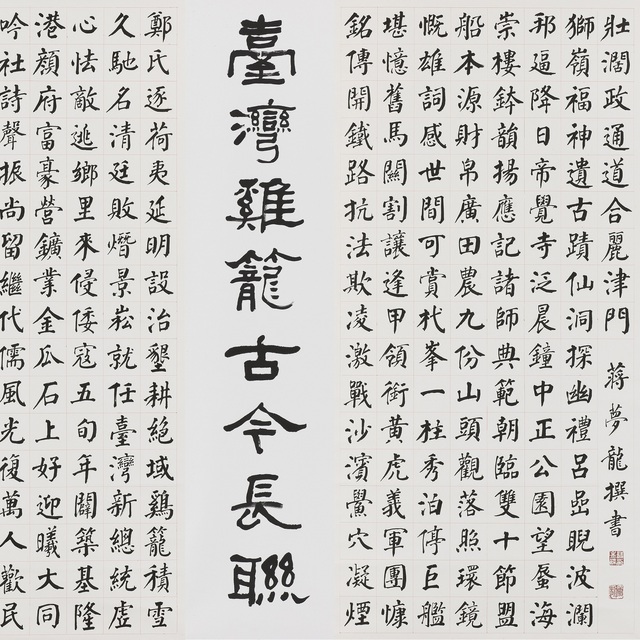 臺灣雞籠古今長聯
鄭氏逐荷夷延明設治墾耕絕域鷄籠積雪
久馳名清廷敗熸景崧就任臺灣新總統虛
心怯敵逃鄉里來侵倭寇五旬年關築基隆
港顏府富豪營鑛業金瓜石上好迎曦大同
吟社詩聲振尚留繼代儒風光復萬人歡民
銘傳開鐵路抗法欺凌激戰沙濱鱟穴凝煙
堪憶舊馬關割讓逢甲領銜黃虎義軍團慷
慨雄詞感世間可賞杙峯一柱秀泊停巨艦
船本源財帛廣田農九份山頭觀落照環鏡
崇樓鉢韻揚應記諸師典範朝臨雙十節盟
邦逼降日帝覺寺泛晨鐘中正公園望蜃海
獅嶺福神遺古蹟仙洞探幽禮呂嵒睨波瀾
壯濶政通道合麗津門
蔣夢龍撰書